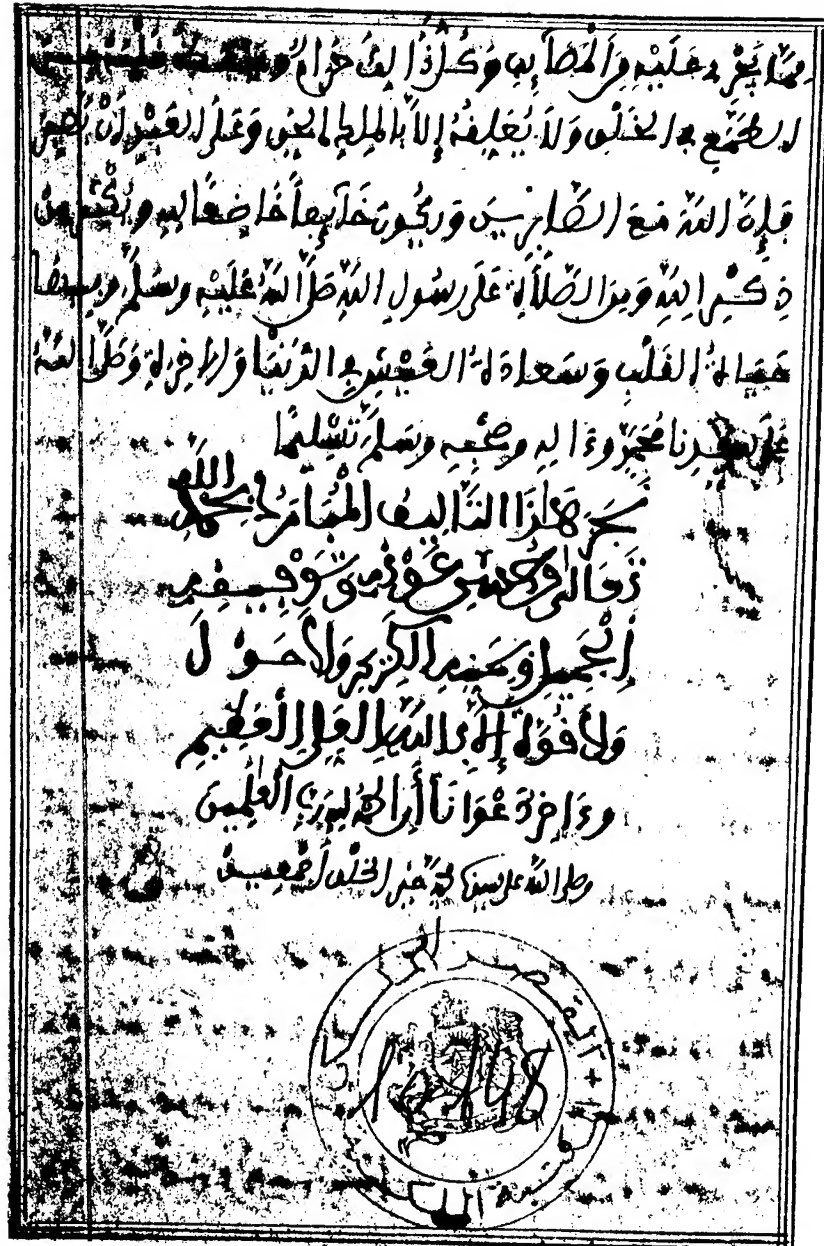 مِمَّا يَجْرِي عَلَيْهِ مِنَ الْمَصَآئِبِ وَكُلُّ ذَالِكَ حَرَامٌ
الطَّمَعِ فِي الْخَلْقِ وَلَا يُعَلِّقُهُ إِلَّا بِالْمَلِكِ الْحَقِّ وَعَلَى الْعَبْدِ أَنْ يَصْبِرَ
فَإِنَّ اللَّهَ مَعَ الصَّابِرِينَ وَيَكُونَ خَآئِفاً خَاضِعاً لِلَّهِ وَيُكْثِرَ مِنْ
ذِكْرِ اللَّهِ وَمِنَ الصَّلَاةِ عَلَى رَسُولِ اللَّهِ صَلَّى اللَّهُ عَلَيْهِ وَسَلَّمَ
حَيَاةُ الْقَلْبِ وَسَعَادَةُ الْعَبْدِ فِي الدُّنْيَا وَالْآخِرَةِ وَصَلَّى اللَّهُ
عَلَى سَيِّدِنَا مُحَمَّدٍ وَءَالِهِ وَصَحْبِهِ وَسَلَّمَ تَسْلِيمًا
نَجَزَ هَاذَا التَّالِيفُ الْمُبَارَكُ بِحَمْدِ اللَّهِ
تَعَالَى وَحُسْنِ عَوْنِهِ وَتَوْفِيقِهِ
الْجَمِيلِ وَيُمْنِهِ الْكَرِيمِ وَلَا حَوْلَ
وَلَا قُوَّةَ إِلَّا بِاللَّهِ الْعَلِيِّ الْعَظِيمِ
وَءَاخِرُ دَعْوَانَا أَنِ الْحَمْدُ لِلَّهِ رَبِّ الْعَالَمِينَ
وصلى الله على سيدنا محمد خير الخلق أجمعين
القصر الملكي
المكتبة الملكية